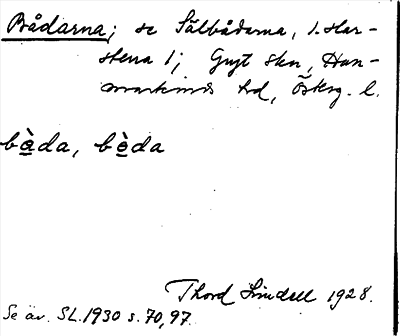 Bådarna; se Sälbådarna, 1. Har-
stena 1; Gryt skn, Ham-
markinds hd, Österg. l.
bàda, bòda
Thord Lindell 1928.
Se äv. SL. 1930 s. 70, 97